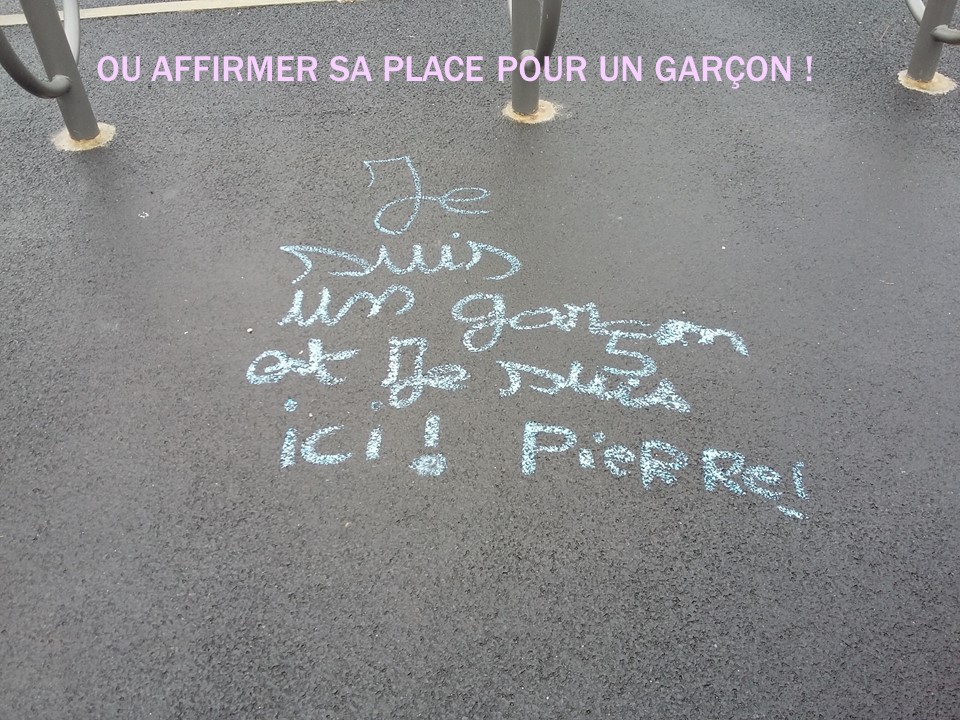 OU AFFIRMER SA PLACE POUR UN GARÇON !
Je
suis
un garçon
et Je suis
ici ! PieRRe!